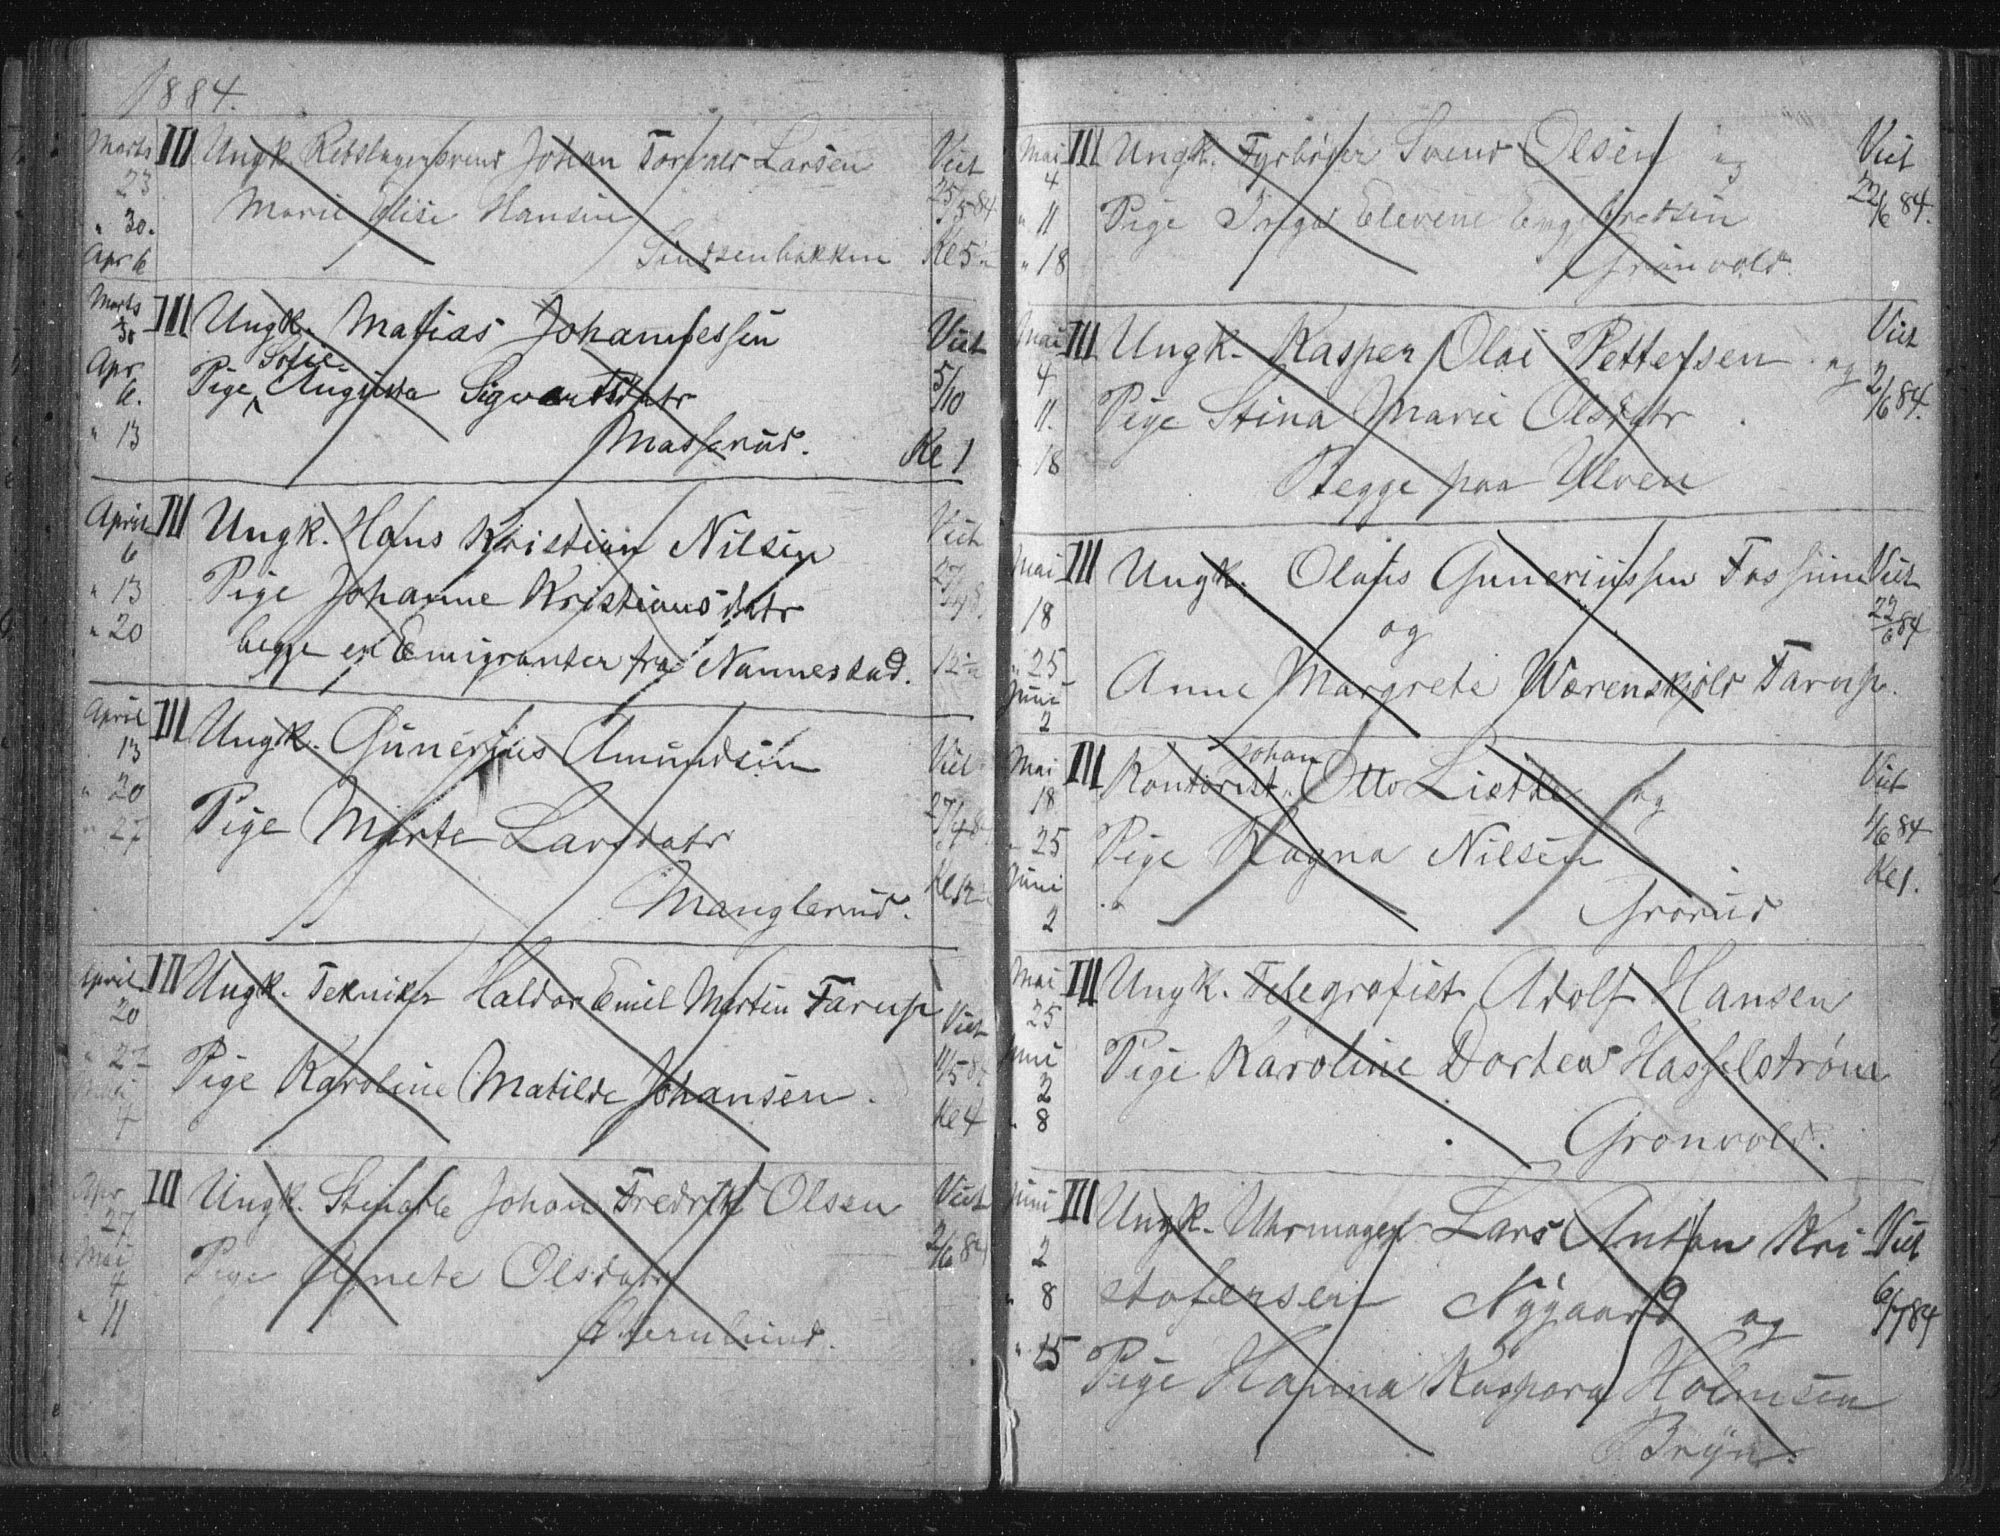 1884.
Marts III Ungk. Rebslagersvend Johan Torvald Larsen Viet
23 Marie Elise Hansen 25/5 84
" 30. Sinsenbakken Kl 5
Apr 6
Marts III Ungk. Matias Johannessen Viet
30 Sofie
Apr. Pige Augusta Sigvartsdatr 5/10
6.
" 13 Masserud. Kl 1
April III Ungk. Hans Kristian Nilsen Viet
6
" 13 Pige Johanne Kristiansdatr 27/4 8
" 20 begge er Emigranter fra Nannestad. 12
April III Ungk. Gunerius Amundsen Viet
13
" 20 Pige Marte Larsdatr 27/4 8
" 27 Manglerud. Kl 12
April III Ungk. Tekniker Haldor Emil Martin Farup Viet
20
" 27 Pige Karoline Matilde Johansen. 11/5 8
Mai Kl 4
4
Apr III Ungk. Johan Fredrik Olsen Viet
27
Mai Pige Agnete Olsdatr 2/6 84
4
" 11
Mai III Ungk. Fyrbøter Svend Olsen og Viet
4 22/6 84.
" 11 Pige Inga Elevene Engebretsen
" 18 Grønvold.
Mai III Ungk. Kasper Olai Pettersen og Viet
4 2/6 84.
11. Pige Stina Marie Olsdatr
" 18 Begge paa Ulven
Mai III Ungk. Olaus Guneriussen Fossum Viet
18 og 22/6 84
" 25
Juni Anne Margrete Wærenskjold Farup.
2
Mai III Johan
18 Kontorist. Otto Liethe og Viet
" 25 Pige Ragna Nilsen 1/6 84
Juni Kl 1.
2 Grorud
Mai III Ungk. Telegrafist Adolf Hansen
25
Juni Pige Karoline Dortea Hasselstrøm
2
" 8 Grønvold.
Juni III Ungk. Uhrmager Lars Anton Kri- Viet
2
" 8 stofersen Nygaard og 6/7 84
" 15 Pige Hanna Kaspara Holmsen
Bryn.